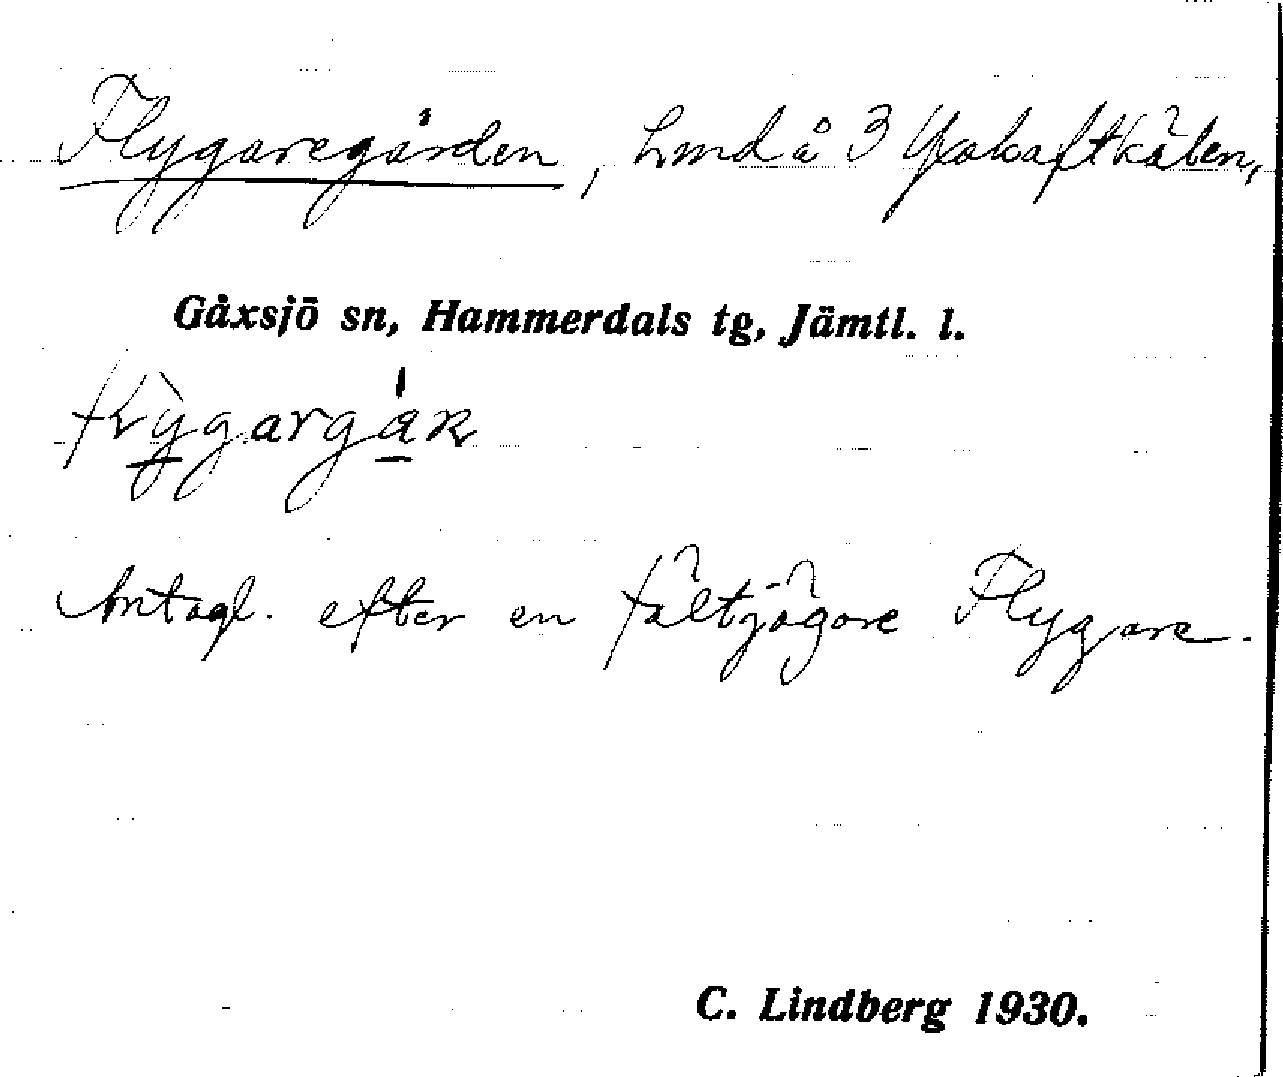 Flygaregården, hmd å 3 Yxskaftkälen,
Gåxsjö sn, Hammerdals tg, Jämtl. l.
Antagl. efter en fältjägare Flygare.
C. Lindberg 1930.